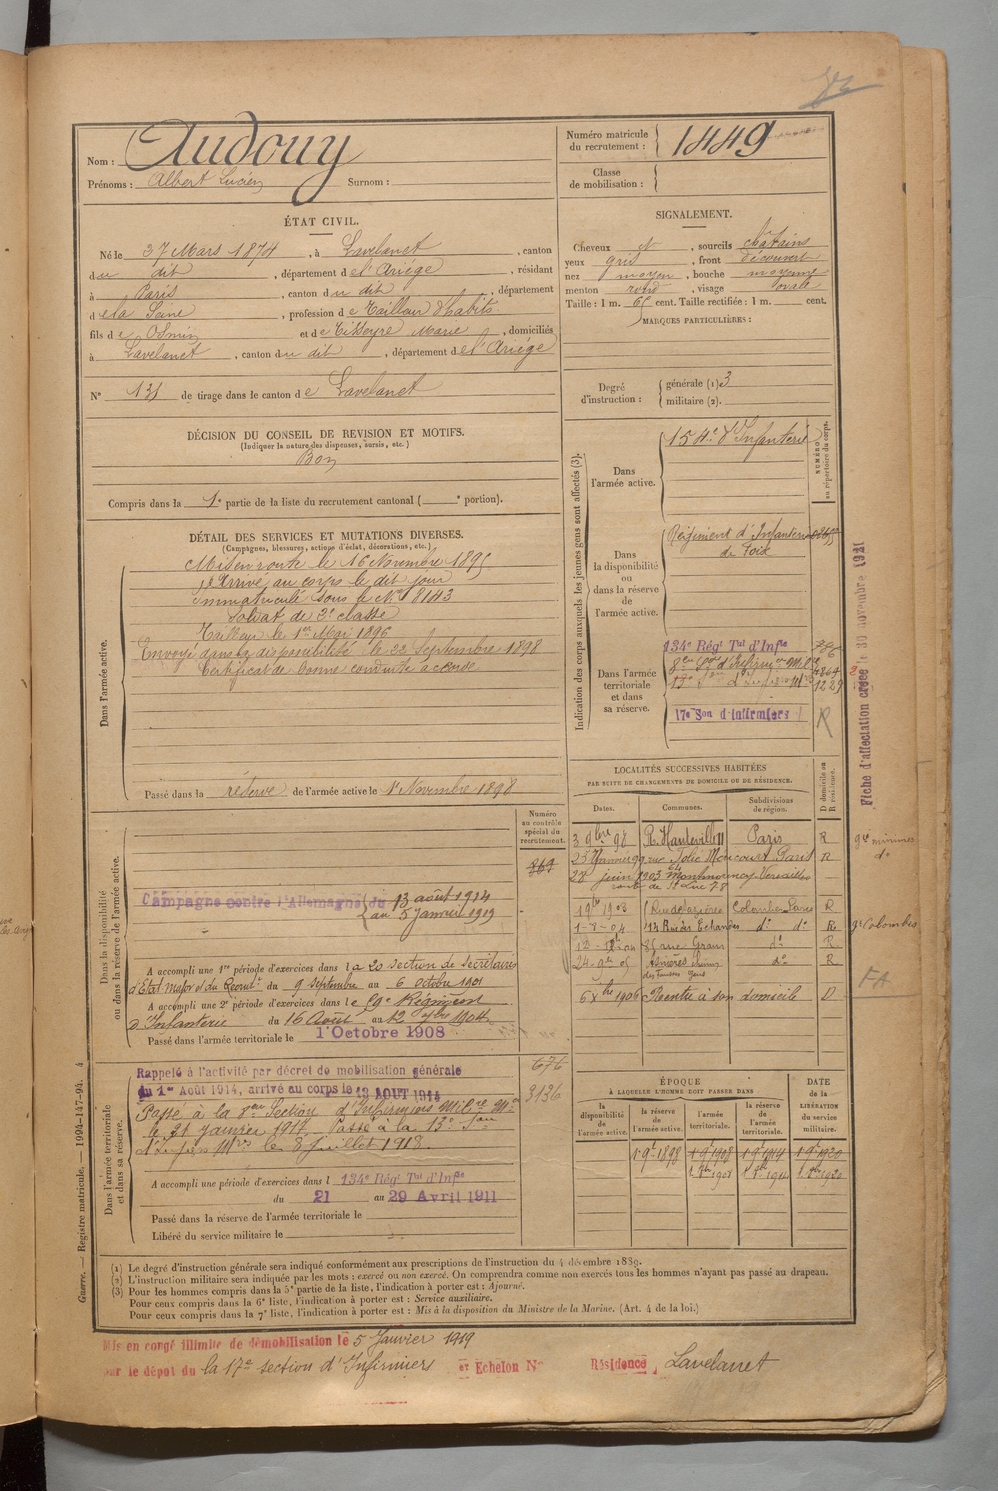 Nom : Audouy
Prénoms : Albert Lucien Surnom :
Numéro matricule du recrutement : 1449
Classe de mobilisation :
ÉTAT CIVIL.
Né le 27 Mars 1874, à Lavelanet, canton
du dit, département de l'Ariège, résidant
à Paris, canton du dit, département
de la Seine, profession de Tailleur d'habits
fils de Osmin et de Tisseyre Marie, domiciliés
à Lavelanet, canton du dit, département de l'Ariège
N° 131 de tirage dans le canton de Lavelanet
DÉCISION DU CONSEIL DE REVISION ET MOTIFS.
(Indiquer la nature des dispenses, sursis, etc.)
Bon
Compris dans la 1e partie de la liste du recrutement cantonal ( e portion).
SIGNALEMENT.
Cheveux et, sourcils chatains
yeux gris, front découvert
nez moyen, bouche moyenne
menton rond, visage ovale
Taille : 1 m. 65 cent. Taille rectifiée : 1 m. cent.
MARQUES PARTICULIÈRES :
Degré d'instruction : générale (1) 3
militaire (2).
DÉTAIL DES SERVICES ET MUTATIONS DIVERSES.
(Campagnes, blessures, actions d'éclat, décorations, etc.)
Dans l'armée active.
Mis en route le 16 Novembre 1895
Arrivé au corps le dit jour
Immatriculé sous le N° 8143
Soldat de 2e classe
Tailleur le 1er Mai 1896
Envoyé dans la disponibilité le 22 Septembre 1898
Certificat de bonne conduite accordé
Passé dans la réserve de l'armée active le 1er Novembre 1898
Indication des corps auxquels les jeunes gens sont affectés (3).
NUMÉRO au répertoire du corps.
Dans l'armée active.
154e d'Infanterie
Dans la disponibilité ou dans la réserve de l'armée active.
Régiment d'Infanterie
de Foix
Dans l'armée territoriale et dans sa réserve.
134e Régt Tal d'Infie
17e Son d'Infirmiers
R
Fiche d'affectation créée le 30 novembre 1921
LOCALITÉS SUCCESSIVES HABITÉES
PAR SUITE DE CHANGEMENTS DE DOMICILE OU DE RÉSIDENCE.
Dates. Communes. Subdivisions de région. D domicile ou R résidence.
3 9bre 98 R. Hauteville 11 Paris R
Colombes
1-8-04 do do R
12-12-04 85 rue do R
24-9bre 05 Asnières do R
6 Xbre 1906 Rentré à son domicile D
FA
Dans la disponibilité ou dans la réserve de l'armée active.
Numéro au contrôle spécial du recrutement.
869
Campagne contre l'Allemagne du 13 août 1914
au 5 Janvier 1919
A accompli une 1re période d'exercices dans la 20 section de secrétaires
d'Etat Major et du Recrutt du 9 septembre au 6 octobre 1901
A accompli une 2e période d'exercices dans le 59e Régiment
d'Infanterie du 16 Août au 12 7bre 1904
Passé dans l'armée territoriale le 1 Octobre 1908
Dans l'armée territoriale et dans sa réserve.
Rappelé à l'activité par décret de mobilisation générale
du 1er Août 1914, arrivé au corps le 13 AOUT 1914
676
3136
Passé à la Section d'Infirmiers Milre
le 21 janvier 1917. Passé à la 13e Son
le 8 Juillet 1918.
A accompli une période d'exercices dans l 134e Régt Tal d'Infie
du 21 au 29 Avril 1911
Passé dans la réserve de l'armée territoriale le
Libéré du service militaire le
ÉPOQUE
À LAQUELLE L'HOMME DOIT PASSER DANS
la disponibilité de l'armée active. la réserve de l'armée active. l'armée territoriale. la réserve de l'armée territoriale.
DATE de la LIBÉRATION du service militaire.
1 9bre 1898 1 9bre 1908 1 9bre 1914 1 9bre 1920
1 8bre 1908 1 8bre 1914 1 8bre 1920
(1) Le degré d'instruction générale sera indiqué conformément aux prescriptions de l'instruction du 4 décembre 1889.
(2) L'instruction militaire sera indiquée par les mots : exercé ou non exercé. On comprendra comme non exercés tous les hommes n'ayant pas passé au drapeau.
(3) Pour les hommes compris dans la 5e partie de la liste, l'indication à porter est : Ajourné.
Pour ceux compris dans la 6e liste, l'indication à porter est : Service auxiliaire.
Pour ceux compris dans la 7e liste, l'indication à porter est : Mis à la disposition du Ministre de la Marine. (Art. 4 de la loi.)
Guerre. — Registre matricule. — 1994-147-94. 4
Mis en congé illimité de démobilisation le 5 Janvier 1919
par le dépôt du la 17e section d'Infirmiers et Echelon N° Résidence, Lavelanet